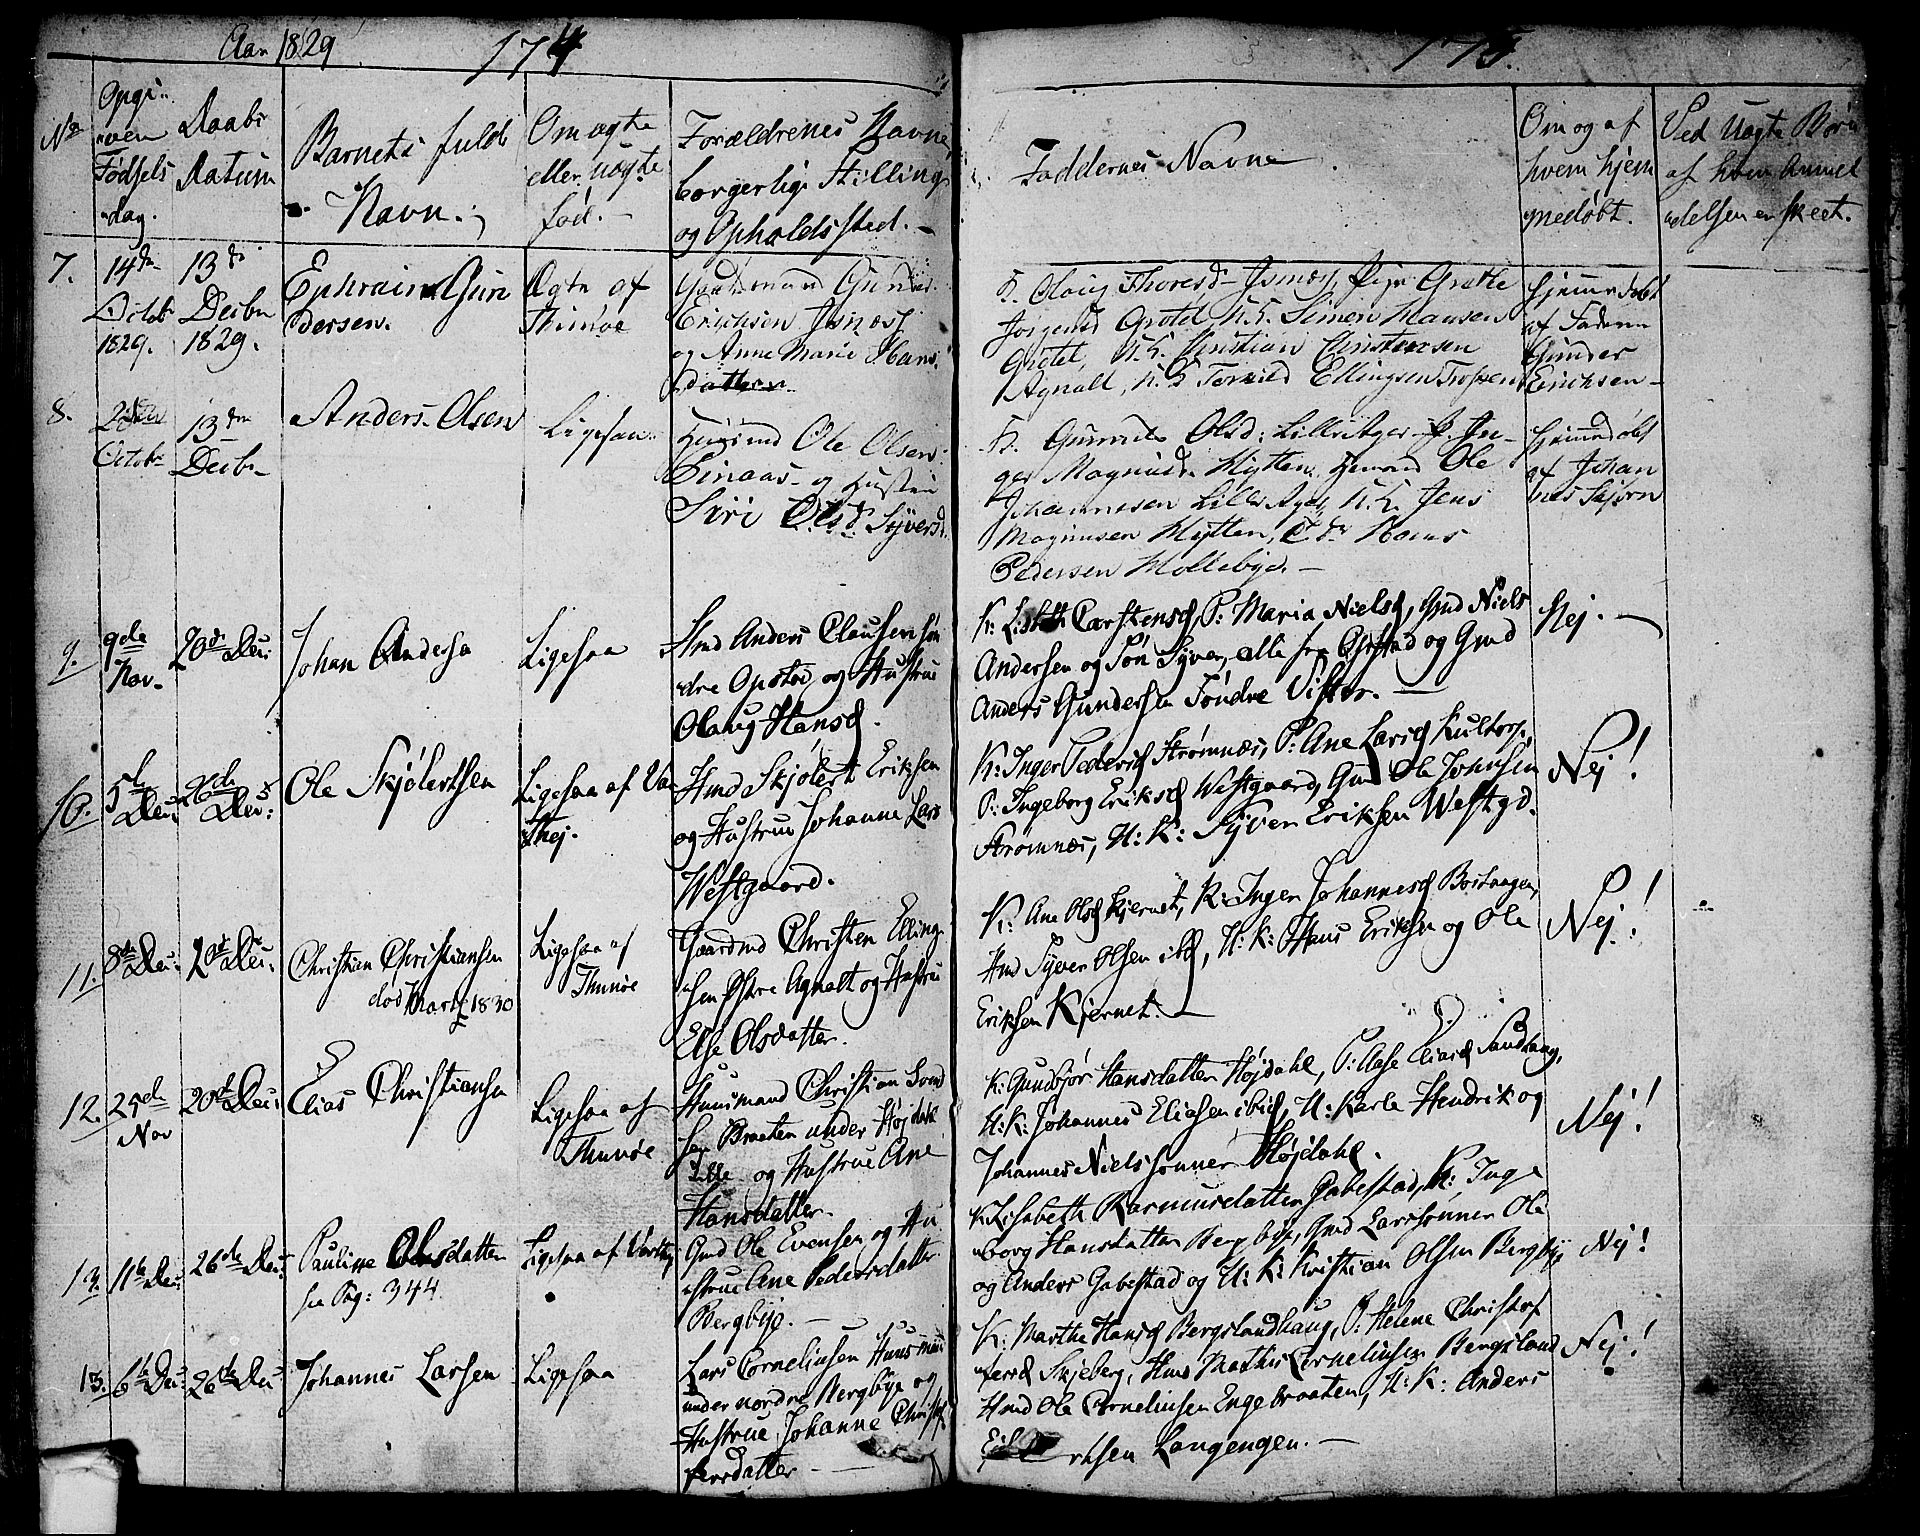 Aar 1829
174
175.
No
Opgi-
-ven
Fødsels
-dag.
Daabs
Datum
Barnets fulde
Navn.
Om ægte
eller uægte
fød. -
Forældrenes Navne,
borgerlige Stilling
og Opholdssted. -
Faddernes Navne
Om og af
hvem hjem
medøbt.
Ved Uægte Børn
af hvem Anmel
delsen er skeet.
7.
14de
Octobr
1829.
13de
Decbr
1829.
Ephraim Gun
dersen.
Ægte af
Thunøe
Gaardmand Gunder
Erichsen Isnæs
og Anne Marie Hans
datter
K. Olaug Thoresd. Isnæs, Pige Grethe
Jørgensd Grotet U.K. Simen Hansen
Grotet, U.K. Christian Christensen
Agnalt, U.K. Torkild Ellingsen
hjemmedøbt
af Faderen
Gunder
Erichsen -
8.
Octobr
13de
Decbr
Anders Olsen
Ligesaa
Huusmd Ole Olsen
og Hustrue
Siri Olsd. Syversd.
K. Olsd: Lilleager P. In-
ger Magnusd. Hytten, Ole
Johannesen Lille Ager, U.K. Jens
Magnusen Hytten, Hans
Pedersen Mollebye. -
hjemmedøbt
af Johan
nes
9.
9de
Nov.
20de Dec:
Johan Andersen
Ligesaa
Hmd Anders Clausen søn
dre Opstad og Hustrue
Olaug Hansd.
K: Lisbeth Carstensd P: Maria Nielsd, Gmd Niels
Andersen og Søn Syver, alle fra Opstad og Gmd
Anders Gundersen Søndre Vister. -
Nej. -
10.
5te
Dec:
26de
Dec:
Ole Skjølertsen
Ligesaa af Var
thej.
Hmd Skjølert Eriksen
og Hustrue Johanne Lars
Westgaard.
K: Inger Pedersd Strømnæs, P: Ane Larsd Kultorp,
P: Ingeborg Eriksd Westgaard, Gmd Ole Johnsen
Strømnæs, U: K: Syver Eriksen Westgd.
Nej!
11.
8de Dec:
20de Dec:
Christian Christiansen
død Marts 1830
Ligesaa af
Thunøe
Gaardmd Christen Elling
sen Østre Agnalt og Hustrue
Else Olsdatter.
K: Ane Olsd Kjernet, K: Inger Johannesd Borhaugen,
Hmd Syver Olsen ibd, U: K: Hans Eriksen og Ole
Eriksen Kjernet. -
Nej!
12.
25de
Nov
20de Dec:
Elias Christiansen
Ligesaa af
Thunøe
Huusmand Christian
sen Braaten under Højdahl
Lille og Hustrue Ane
Hansdatter.
K: Gunbjør Hansdatter Højdahl, P: Aase Eliasd Sandhaug,
U: K: Johannes Eliasen ibid, U: Karle Hendrik og
Johannes Niels Sønner Højdahl.
Nej!
13.
11te Dec:
26de Dec:
Pauline Olsdatter
see Pag: 344.
Ligesaa af Varthej
Gmd Ole Evensen og Hu
strue Ane Pedersdatter
Bergbye. -
K: Elisabeth Rasmusdatter Gabestad, K: Inge
borg Hansdatter Bergbye, Gmd Larssønner Ole
og Anders Gabestad og U: K: Kristian Olsen Bergbye
Nej!
13.
6te Dec:
26de Dec
Johannes Larsen
Ligesaa
Lars Corneliusen Huusmand
under nordre Bergbye og
Hustrue Johanne Christof
fersdatter -
K: Marthe Hansd Bergslandhaug, P: Helene Christof
fersd Skjeberg, Hmd Mathis Corneliusen Bergsland
Hmd Ole Corneliusen Engebraaten, U: K: Anders
Langengen. -
Nej!